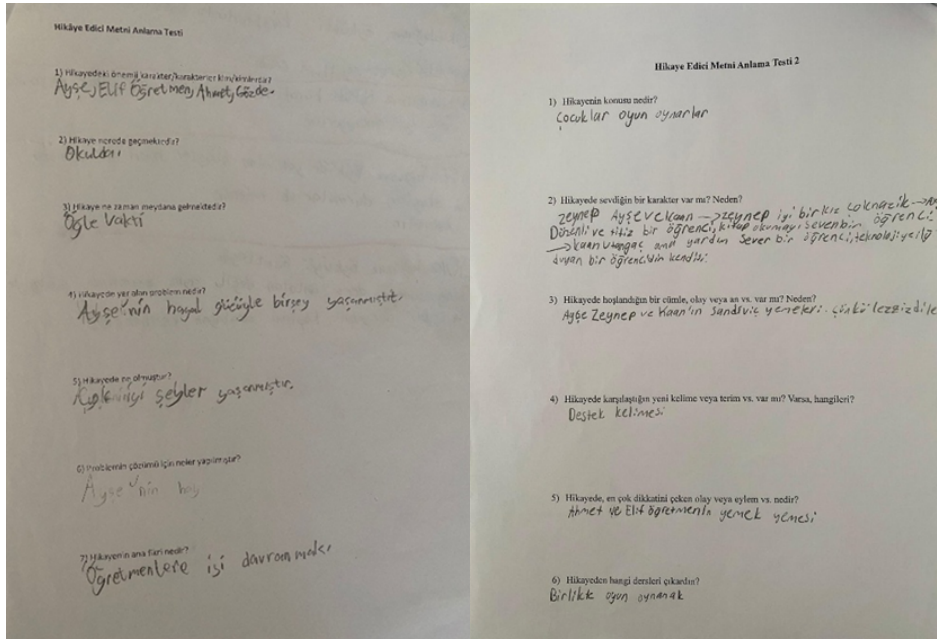 Hikâye Edici Metni Anlama Testi
1) Hikayedeki önemli karakter/karakterler kim/kimlerdir?
Ayşe, Elif Öğretmen, Ahmet, Gözde.
2) Hikaye nerede geçmektedir?
Okulda.
3) Hikaye ne zaman meydana gelmektedir?
Öğle vakti
4) Hikayede yer alan problem nedir?
Ayşe'nin hayal gücüyle birşey yaşanmıştır.
5) Hikayede ne olmuştur?
şeyler yaşanmıştır.
6) Problemin çözümü için neler yapılmıştır?
Ayşe'nin hay
7) Hikayenin ana fikri nedir?
Öğretmenlere iyi davranmak.
Hikaye Edici Metni Anlama Testi 2
1) Hikayenin konusu nedir?
Çocuklar oyun oynarlar
2) Hikayede sevdiğin bir karakter var mı? Neden?
Zeynep Ayşe ve Kaan → Zeynep iyi bir kız çok nazik →
ve titiz bir öğrenci, kitap okumayı seven bir öğrenci
→ Kaan utangaç ama yardım sever bir öğrenci, teknolojiye
duyan bir öğrencidir kendisi
3) Hikayede hoşlandığın bir cümle, olay veya an vs. var mı? Neden?
Ayşe Zeynep ve Kaan'ın sandviç yemeleri. Çünkü
4) Hikayede karşılaştığın yeni kelime veya terim vs. var mı? Varsa, hangileri?
Destek kelimesi
5) Hikayede, en çok dikkatini çeken olay veya eylem vs. nedir?
Ahmet ve Elif öğretmenin yemek yemesi
6) Hikayeden hangi dersleri çıkardın?
Birlikte oyun oynamak